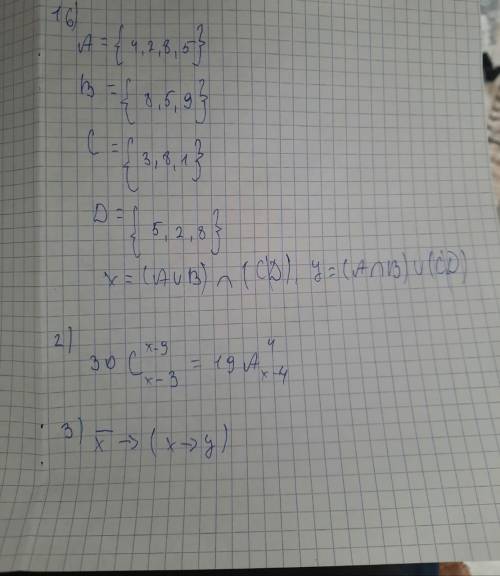 16)
A = {4, 2, 8, 5}
B = {8, 5, 9}
C = {3, 8, 1}
D = {5, 2, 8}
x = (A∪B) ∩ (C\D), y = (A∩B) ∪ (C\D)
2) 30 C_{x-3}^{x-9} = 19 A_{x-4}^{4}
3) x̅ → (x → y)